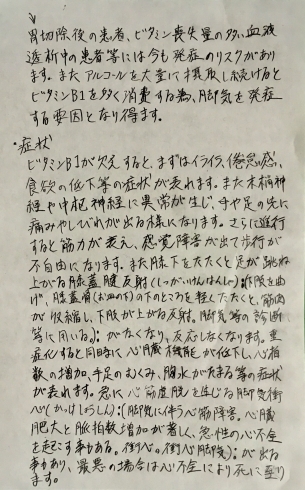 胃切除後の患者、ビタミン喪失量の多い血液
透析中の患者等には今も発症のリスクがあり
ます。またアルコールを大量に摂取し続けると
ビタミンB1を多く消費する為、脚気を発症
する要因となり得ます。
・症状
ビタミンB1が欠乏すると、まずはイライラ、倦怠感、
食欲の低下等の症状が表れます。また末梢神
経や中枢神経に異常が生じ、手や足の先に
痛みやしびれが出る様になります。さらに進行
すると筋力が衰え、感覚障害が出て歩行が
不自由になります。また膝下をたたくと足が跳ね
上がる膝蓋腱反射(しつがいけんはんしゃ:下肢を曲
げ、膝蓋骨(お皿の下)の下のところを軽くたたくと、筋肉
が収縮し、下肢が上がる反射。脚気等の診断
等に用いる。):がなくなり、反応しなくなります。重
症化すると同時に心臓機能が低下し、心拍
数の増加、手足のむくみ、胸水がたまる等の症状
が表れます。急に心筋虚脱を生じる脚気衝
心(かっけしょうしん):(脚気に伴う心筋障害。心臓
肥大と脈拍数増加が著しく、急性の心不全
を起こす事もある。衝心。衝心脚気):が出る
事もあり、最悪の場合は心不全により死に至り
ます。